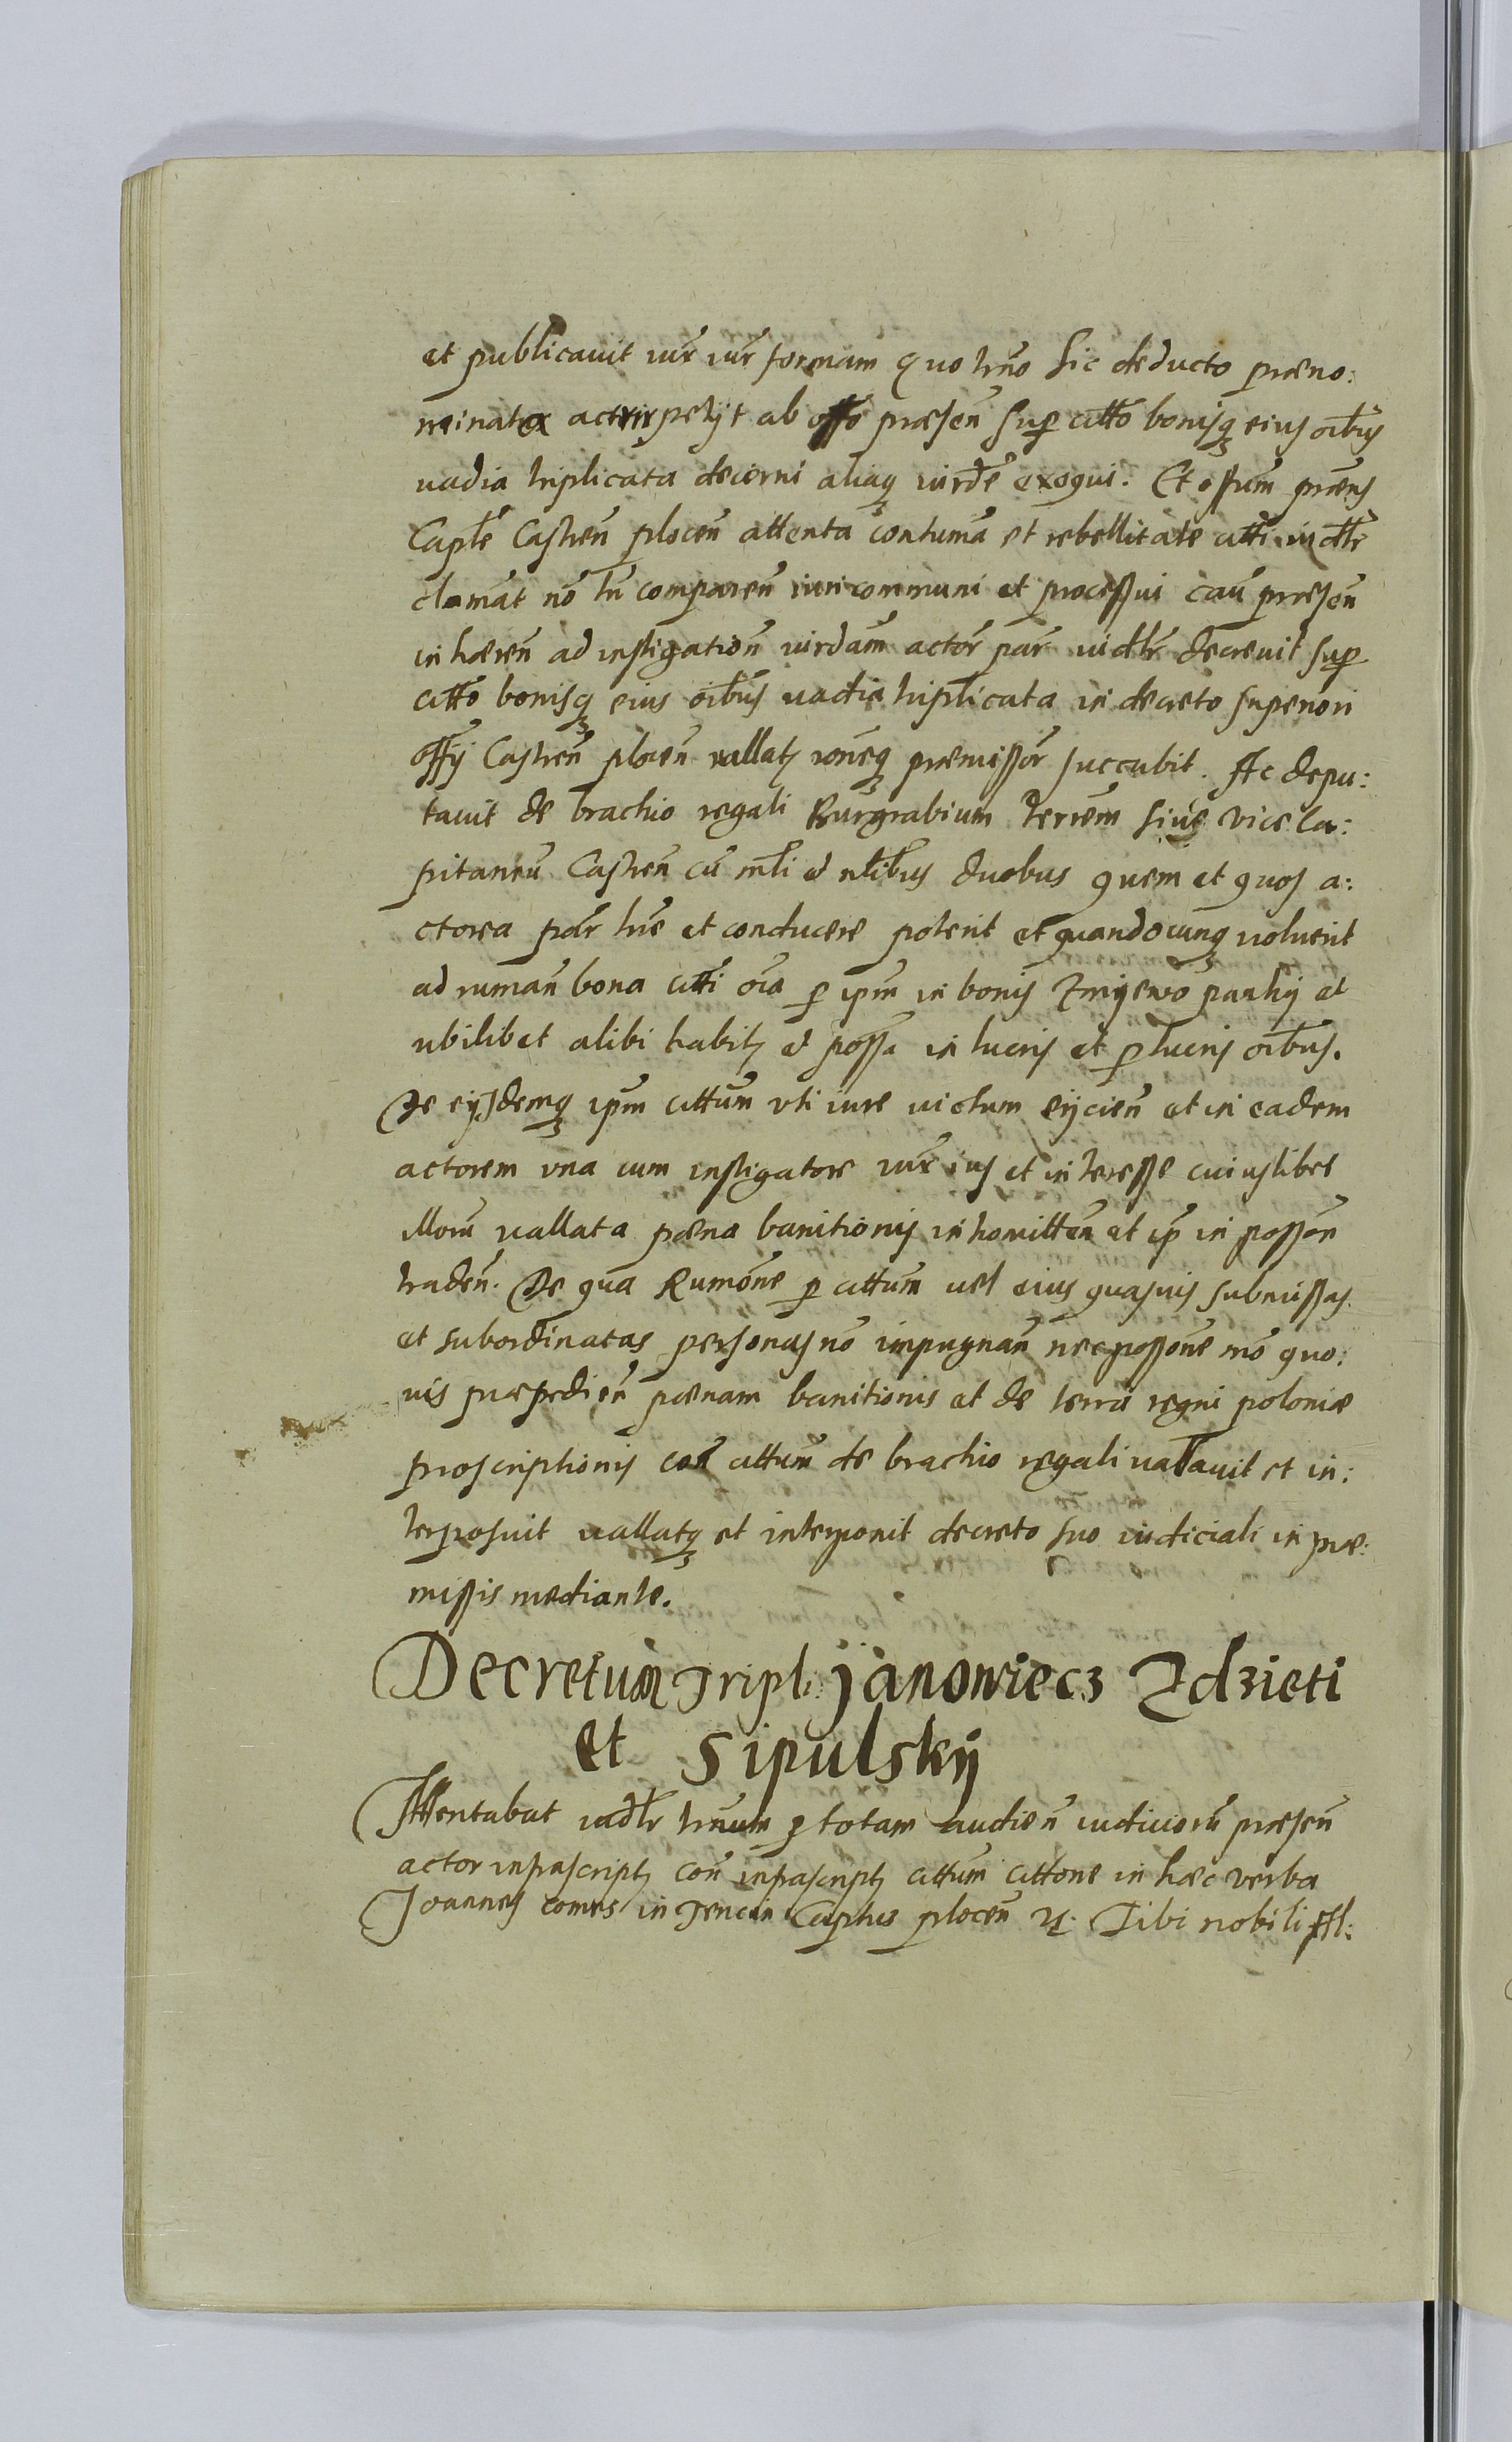 et publicavit iux̄ iur̄ formam quo trn̄o sic deducto præno:
minata actrix petijt ab offo præsen̄ sup cit̄to bonisq eius oībus
vadia triplicata decerni aliaq iurd̄e exequi. Et offum præns
Capl̄e Castren̄ plocen̄ attenta contuma et rebellitate cit̄ti iudl̄r
clamāt nō tn̄ comparen̄ iuri communi et processui cau præsen̄
inhæren̄ ad instigation̄ iurdam̄ actor̄ par̄ iudl̄r decrevit sup
cit̄to bonisq eius oībus vadia triplicata in decreto superiori
offij Castren̄ plocen̄ vallatȝ rōneq præmissor̄ succubit. Ac depu:
tavit de brachio regali Burgrabium terrēm sive vice Ca:
pitaneū Castren̄ cū ml̄i et nl̄ibus duobus quem et quos a:
ctorea pār hr̄e et conducere poterit et quandocunq voluerit
ad ruman̄ bona cit̄ti oīa p ipm̄ in bonis Zmijewo parthij et
ubilibet alibi habitȝ et possa in lucris et plucris oībus.
De eijsdemq ipm̄ cit̄tum uti iure victum eijcien̄ et in eadem
actorem una cum instigatore iux̄ ius et interesse cuiuslibet
illorū vallata pæna banitionis intromitten̄ et ip̄ in posson̄
traden̄. De qua Rumōne p cit̄tum vel eius quasvis submissas
et subordinatas personas nō impugnan̄ nec possōne mō quo:
vis præpedien̄ pænam banitionis et de terra regni poloniæ
proscriptionis con̄ cit̄tum de brachio regali vallavit et in:
terposuit vallatq et interponit decreto suo iudiciali in præ:
missis mediante.
Decretum Tripl: Janowiecz Zdzieti
et Sipulskij
Attentabat iudl̄r trn̄um p totam audien̄ iudiciorū præsen̄
actor infrascriptȝ con̄ infrascriptȝ cit̄tum cit̄tone in hæc verba
Joannes comes in Tencin Captus plocen̄ Tibi nobili Al: